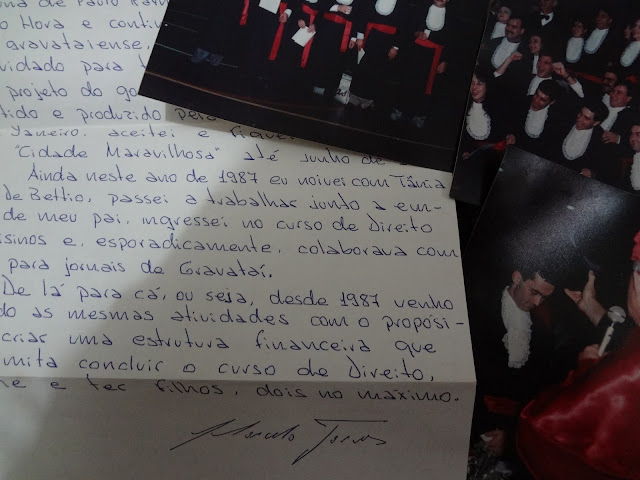 na de Paulo
o Hora e conti
gravataiense,
vidado para
projeto do go
tido e produzido pe
Janeiro, aceitei e fiquei
"Cidade Maravilhosa" até junho de
Ainda neste ano de 1987 eu noivei com Tânia
De Bettio, passei a trabalhar junto a em-
de meu pai, ingressei no curso de Direito
isinos e, esporadicamente, colaborava com
para jornais de Gravataí.
De lá para cá, ou seja, desde 1987 venho
do as mesmas atividades com o propósi-
criar uma estrutura financeira que
mita concluir o curso de Direito,
e ter filhos, dois no máximo.